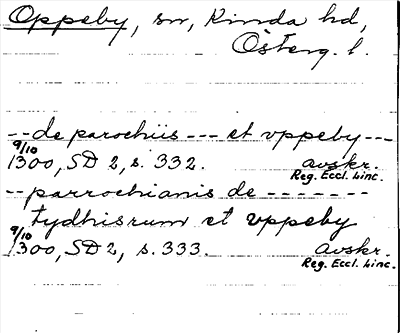 Oppeby, sn, Kinda hd,
Österg. l.
-- de parochiis --- et vppeby ---
9/10
1300, SD 2, s. 332. avskr.
Reg. Eccl. Linc.
-- parrochianis de -------
tydhisrum et vppeby
9/10
1300, SD 2, s. 333. avskr.
Reg. Eccl. Linc.